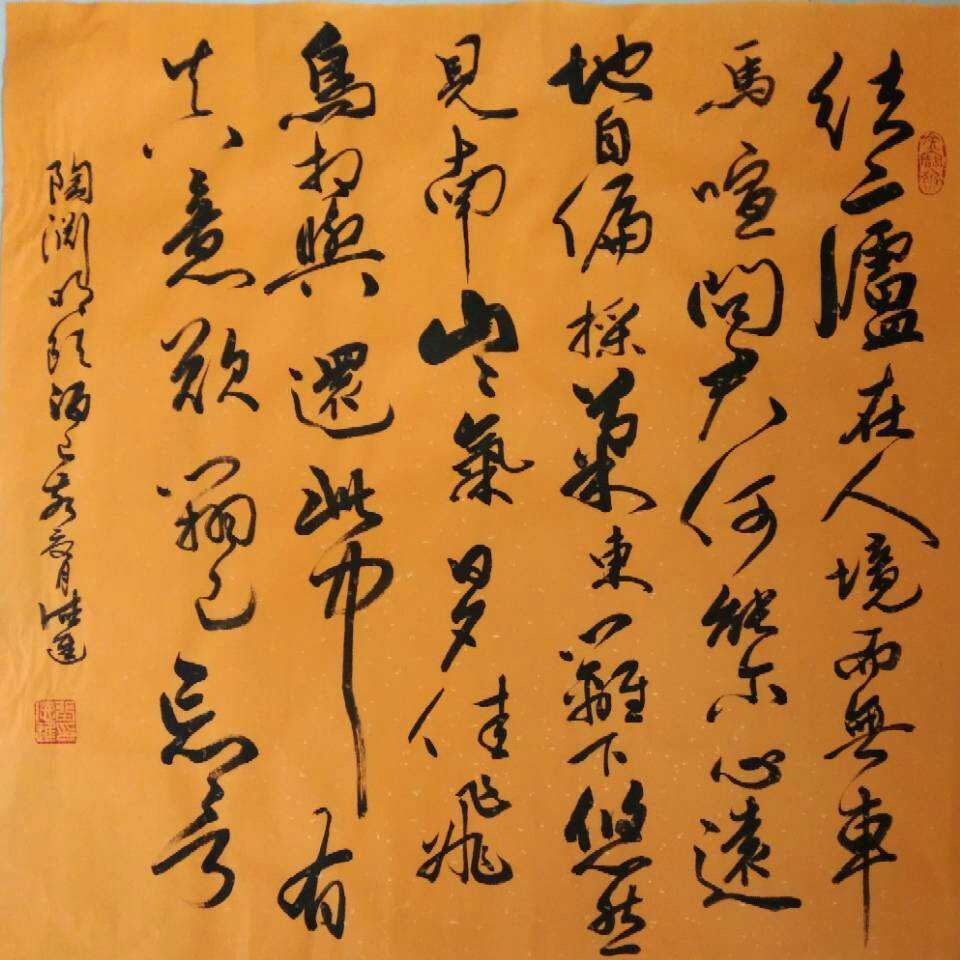 结廬在人境而無車
馬喧問君何能尔心遠
地自偏採菊東籬下悠然
見南山〻氣日夕佳飛
鳥相與還此中有
真意欲辯已忘言
陶渊明飲酒己亥月